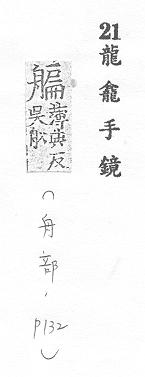 21龍龕手鏡
艑薄典反
吳舩
（舟部，p132）